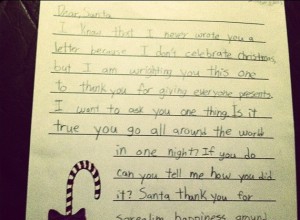 Dear, Santa
I know that I never wrote you a
letter because I don't celebrate christmas
but I am wrighting you this one
to thank you for giving everyone presents
I want to ask you one thing. Is it
true you go all around the world
in one night? If you do
can you tell me how you did
it? Santa thank you for
happiness around